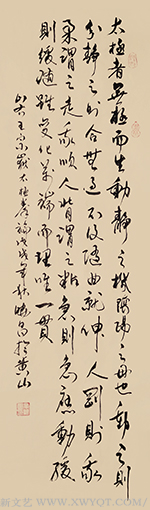 太極者無極而生動靜之機陰陽之母也動之則
分靜之則合無過不及隨曲就伸人剛則我
柔謂之走我順人背謂之粘急則急應動緩
則緩隨雖變化萬端而理唯一貫
山右王宗嶽太極拳論戊戌年秋曉於黃山
新文艺 - WWW.XWYOT.COM